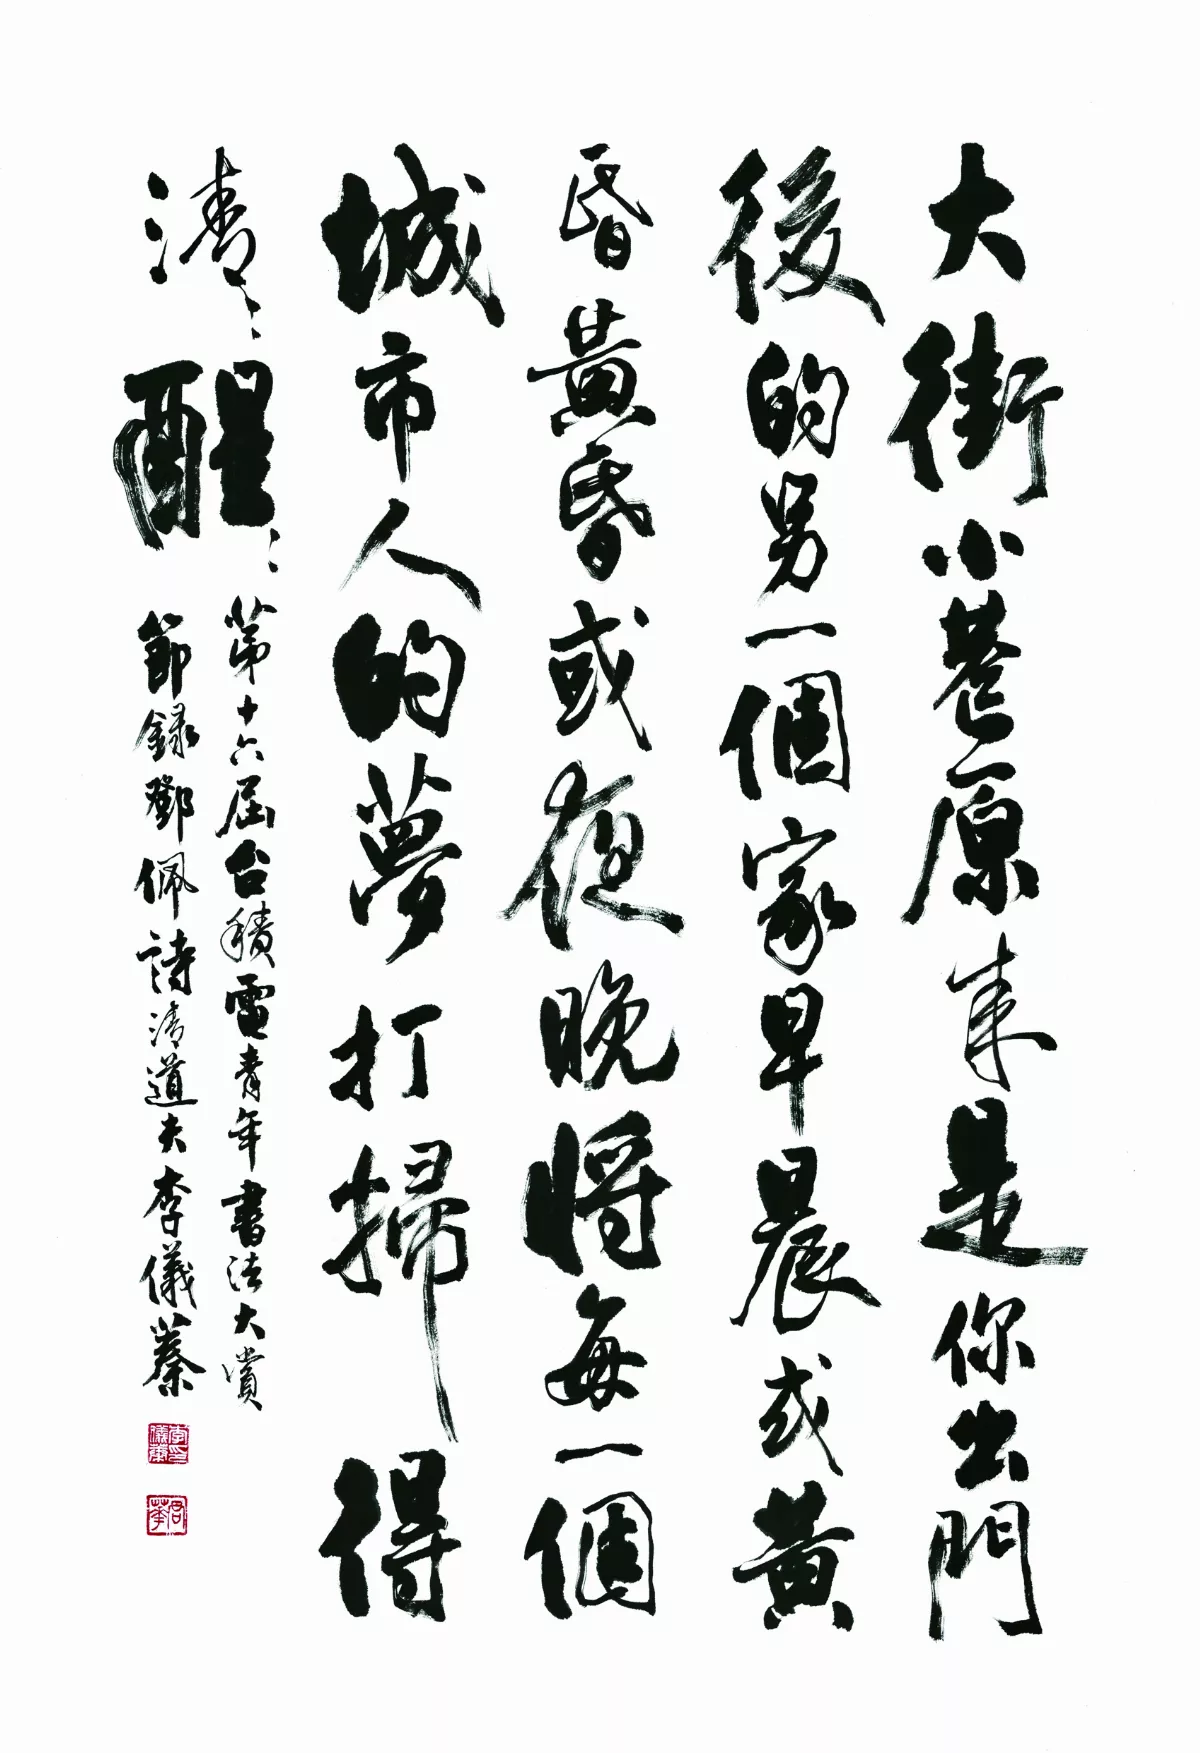 大街小巷原來是你出門
後的另一個家早晨或黃
昏黃昏或夜晚將每一個
城市人的夢打掃得
清〻醒〻
第十六屆台積電青年書法大賞
節錄鄧佩詩清道夫李儀蓁
李印儀蓁